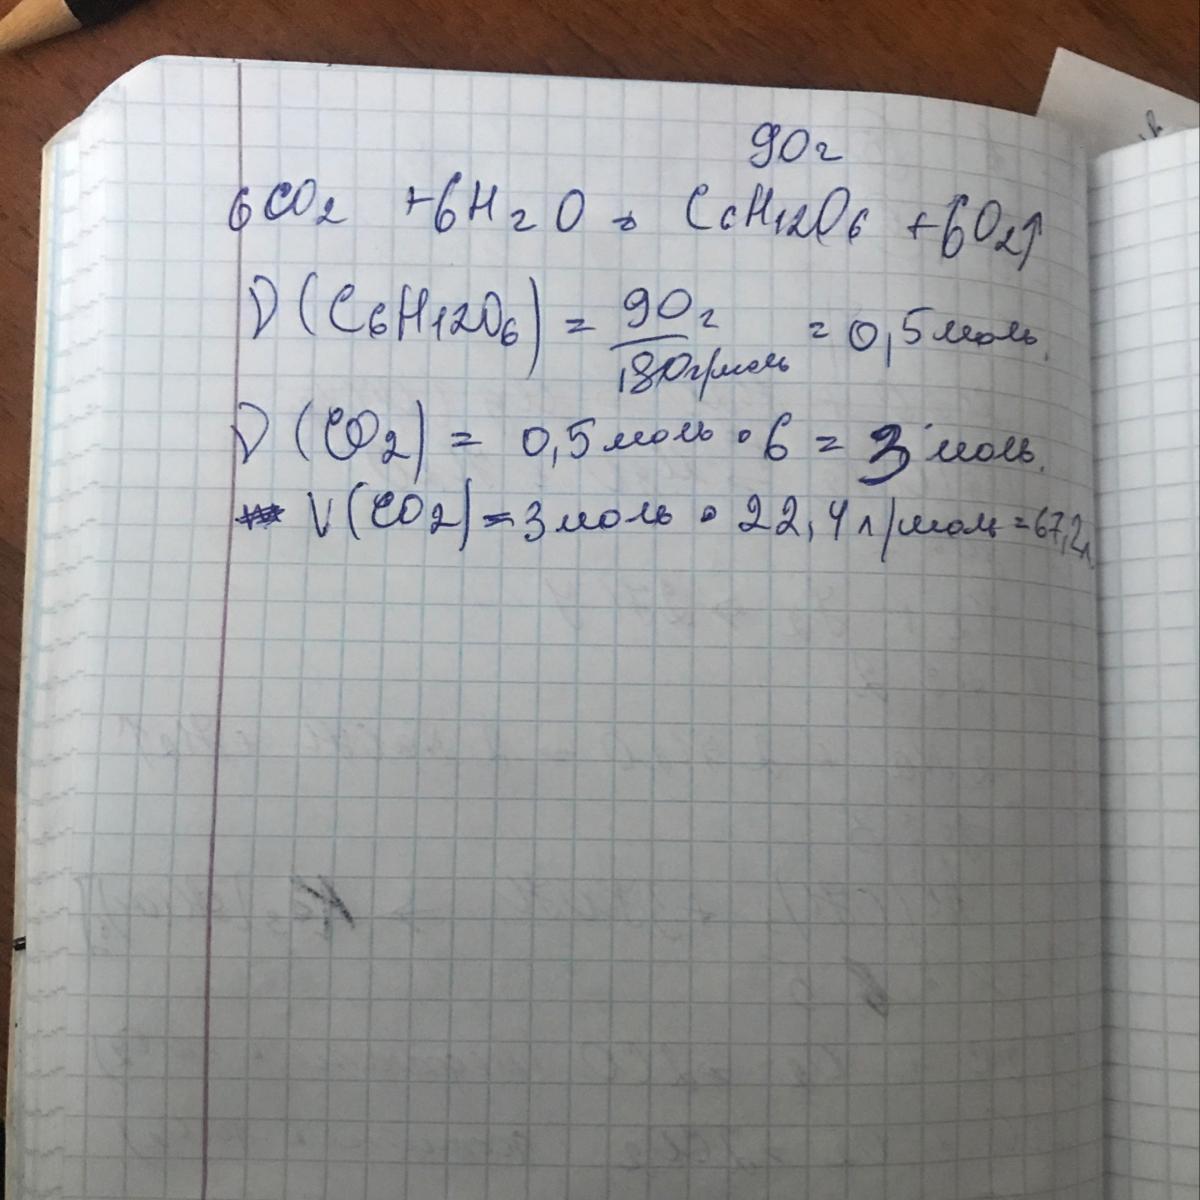 90г
6CO2 + 6H2O = C6H12O6 + 6O2↑
ν(C6H12O6) = 90г/180г/моль = 0,5 моль.
ν(CO2) = 0,5 моль • 6 = 3 моль.
V(CO2) = 3 моль • 22,4 л/моль = 67,2л.